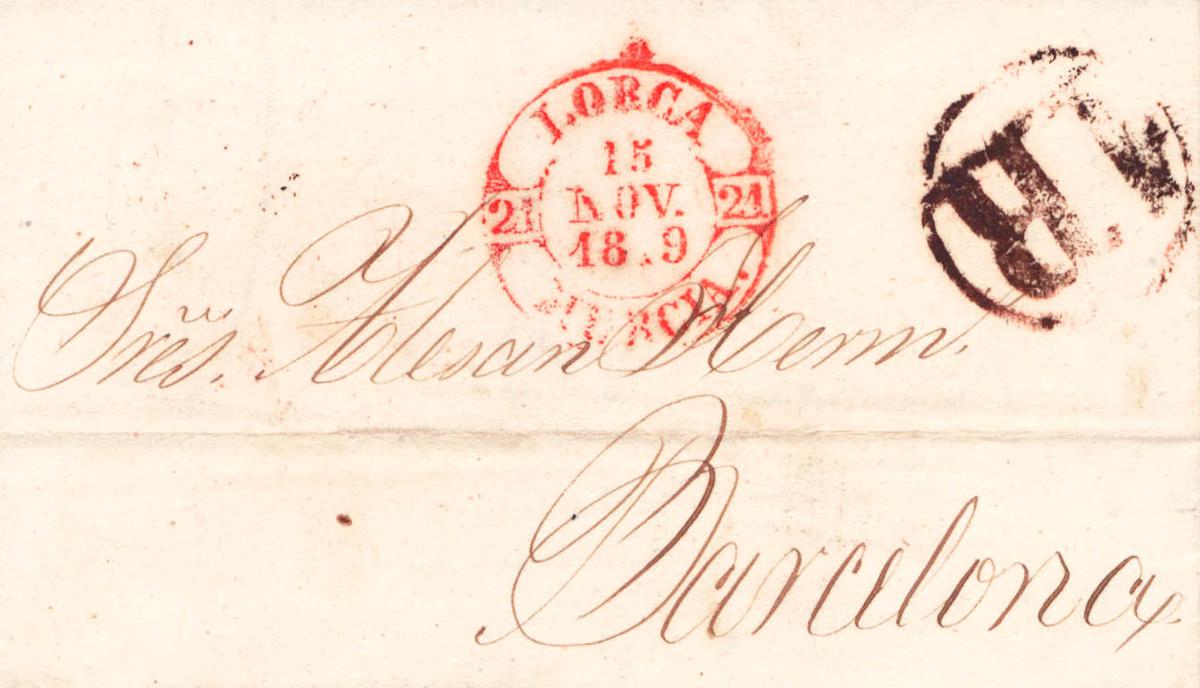 LORCA
15
NOV.
18 9
21 21
MURCIA.
Sres. Hermˢ
Barcelona